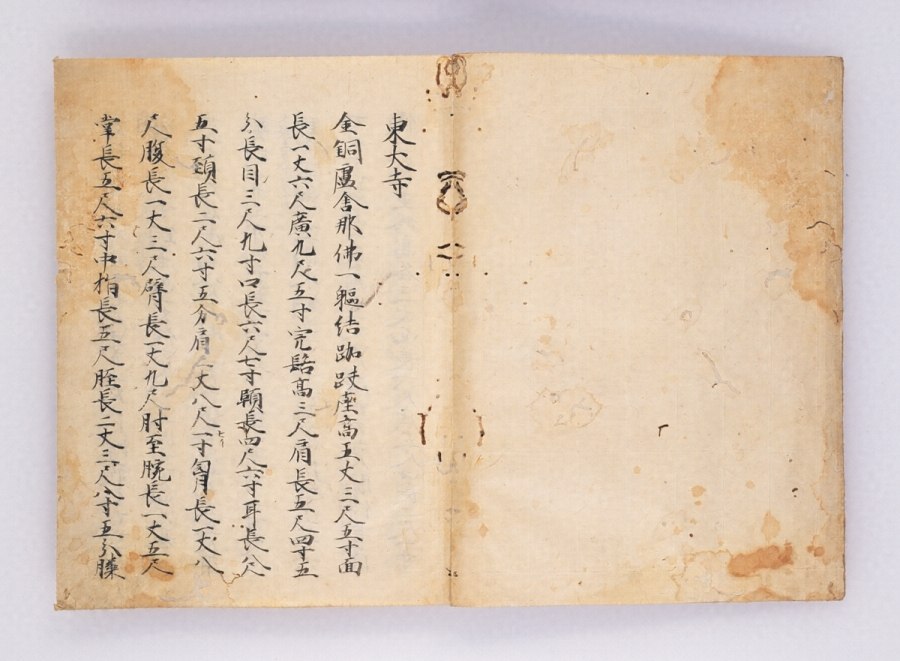 東大寺
金銅盧舎那佛一軀結跏趺座高五丈三尺五寸面
長一丈六尺廣九尺五寸完髻高三尺肩長五尺四寸五
分長目三尺九寸口長六尺七寸顊長四尺六寸耳長八尺
五寸頚長二尺六寸五分肩長二丈八尺一寸胷長一丈八
尺腹長一丈三尺臂長一丈九尺肘至腕長一丈五尺
掌長五尺六寸中指長五尺脛長二丈三尺八寸五分膝